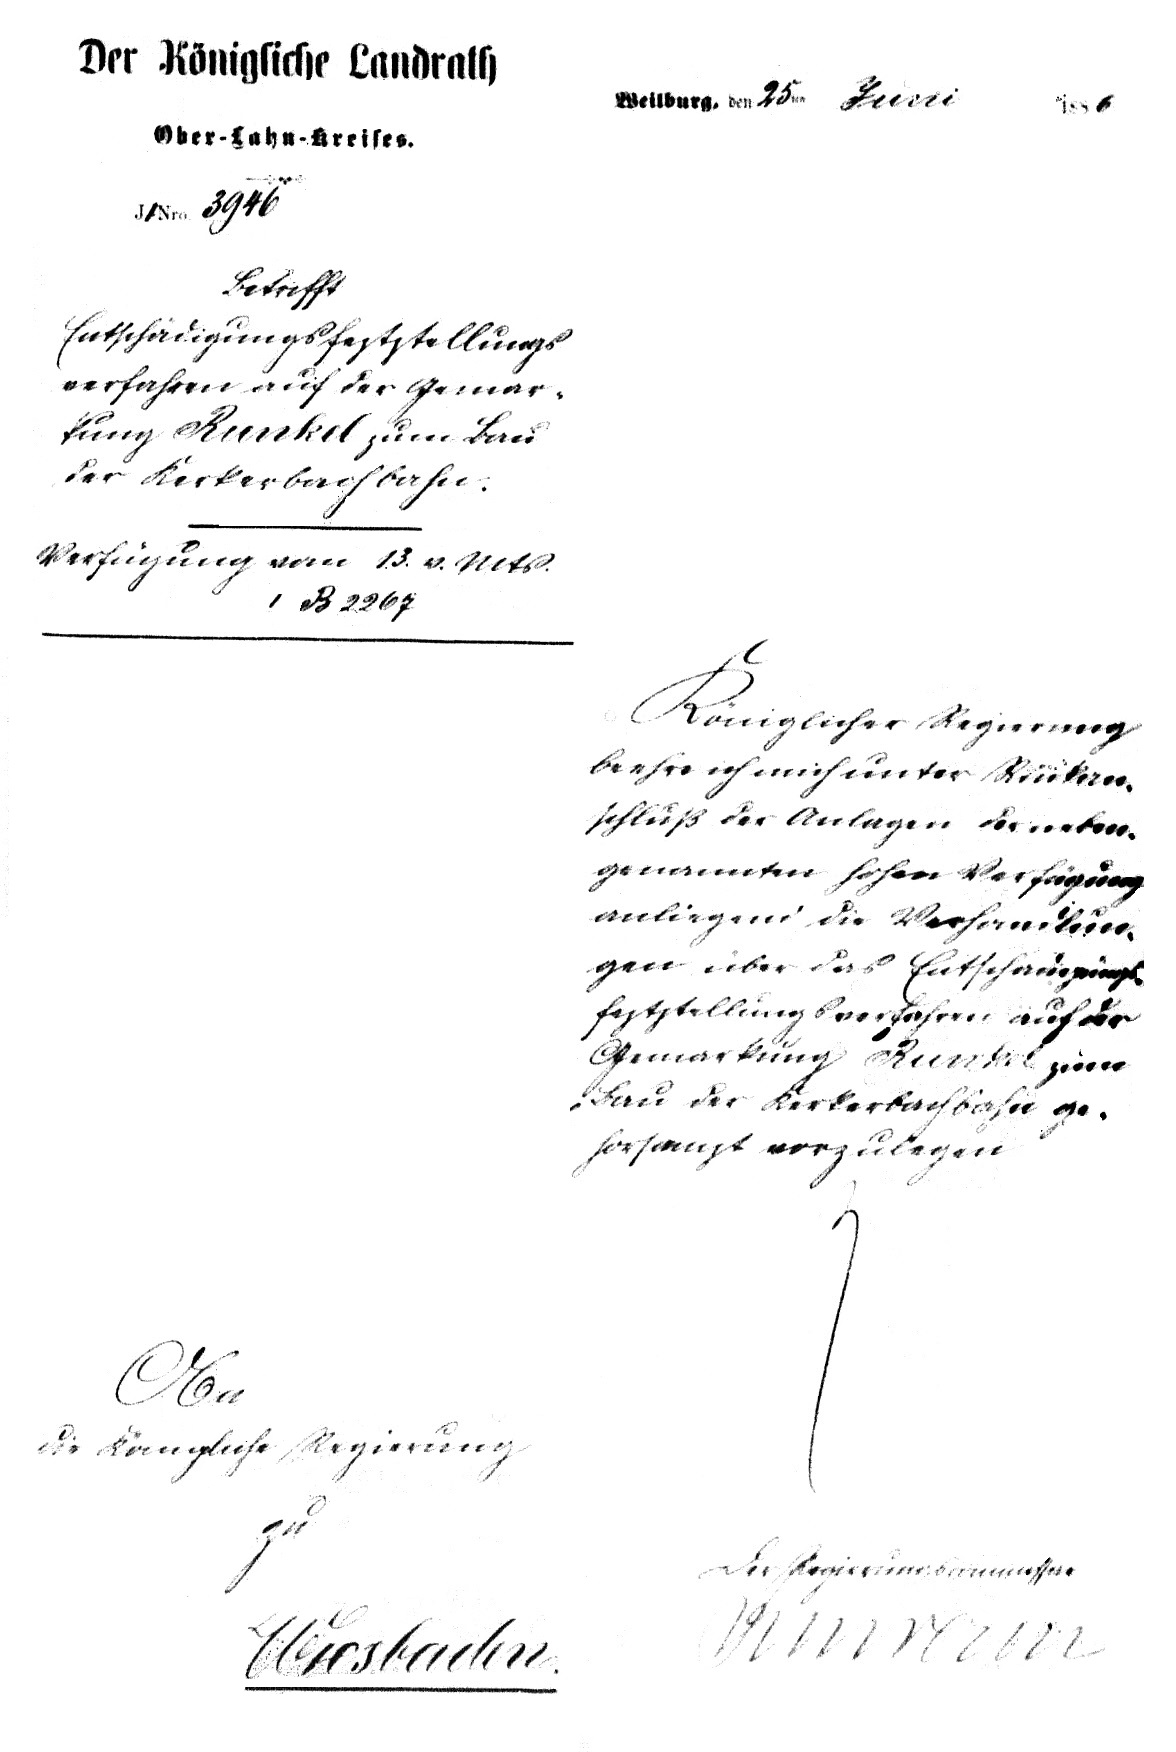 Der Königliche Landrath
Ober-Lahn-Kreises.
Weilburg, den 25ten Juni 1886
J. Nro. 3946
Betrifft
Entschädigungsfeststellungs
verfahren auf der Gemar-
kung Runkel zum Bau
der Kerkerbachbahn.
Verfügung vom 13. v. Mts.
I B 2267
Königlicher Regierung
beehre ich mich unter Rückan-
schluß der Anlagen der neben-
genannten hohen Verfügung
anliegend die Verhandlun-
gen über das Entschädigungs-
feststellungsverfahren auf der
Gemarkung Runkel zum
Bau der Kerkerbachbahn ge-
horsamst vorzulegen
An
die Königliche Regierung
zu
Wiesbaden.
Der Regierungscommissar